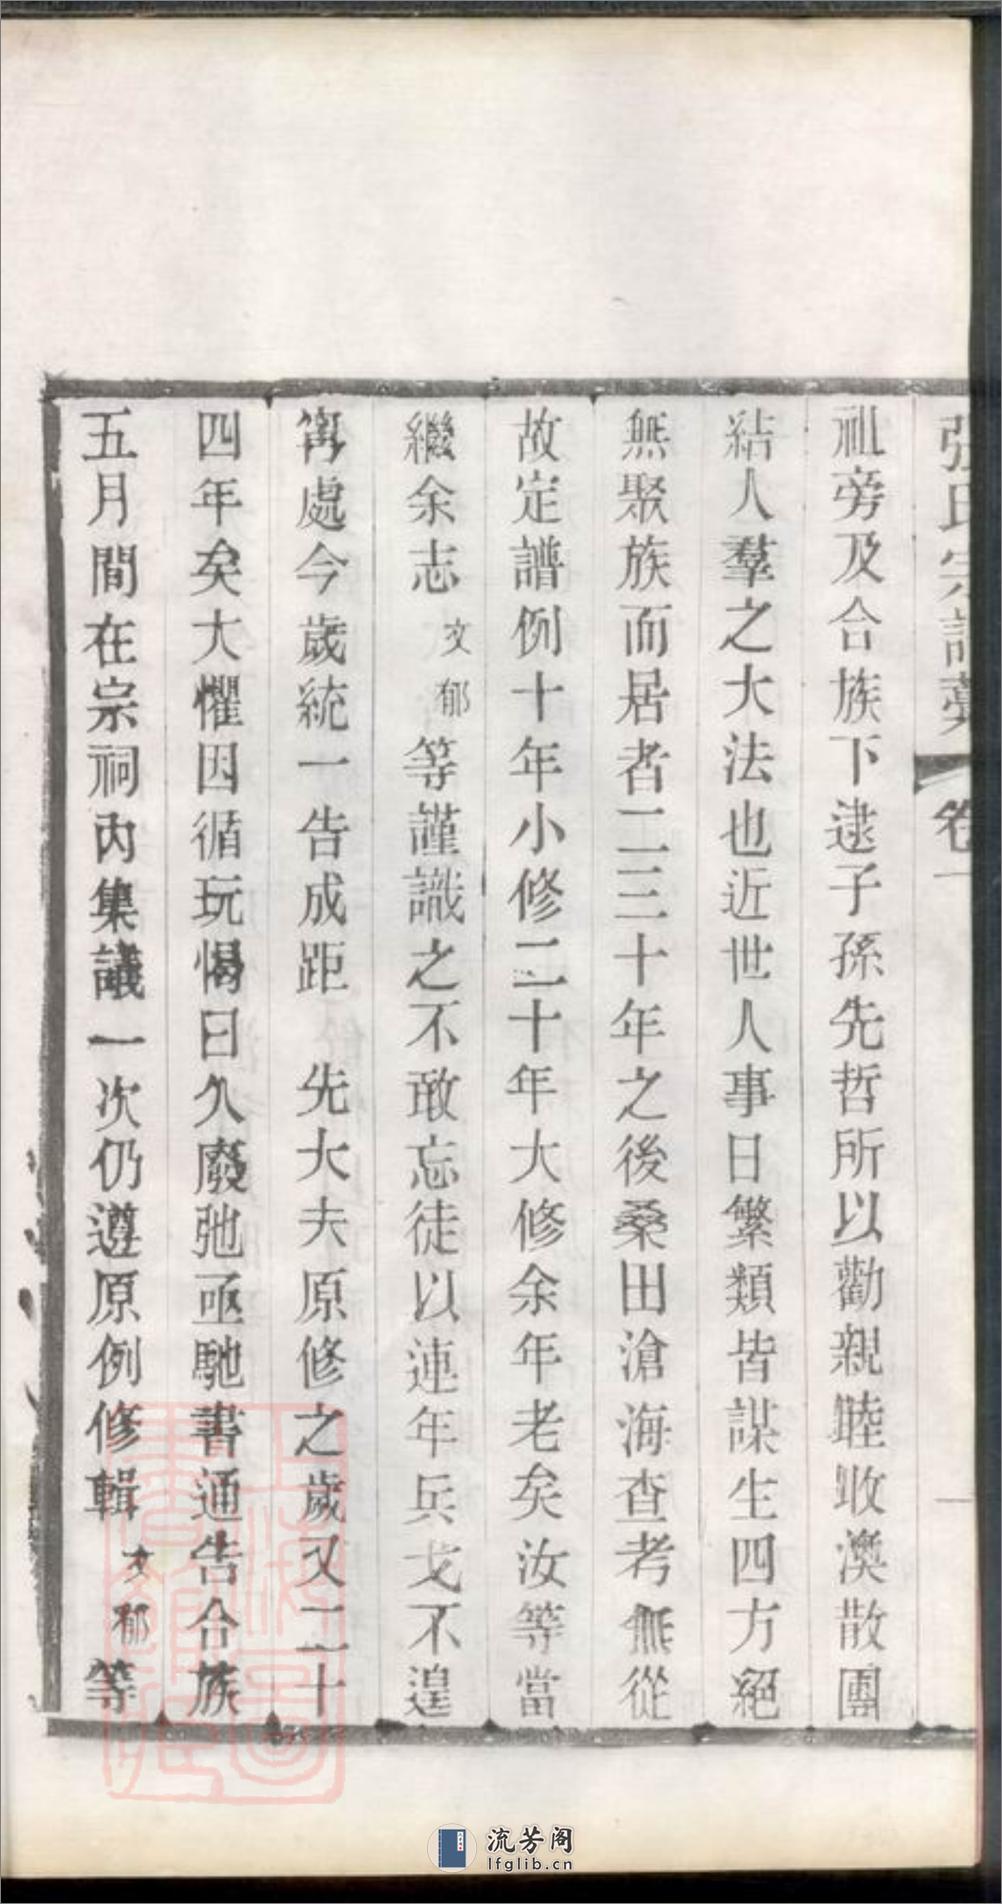 張氏宗譜藁 卷一
祖旁及合族下逮子孫先哲所以勸親睦收渙散團
結人羣之大法也近世人事日繁類皆謀生四方絕
無聚族而居者二三十年之後桑田滄海查考無從
故定譜例十年小修二十年大修余年老矣汝等當
繼余志文郁等謹識之不敢忘徒以連年兵戈不遑
寧處今歲統一告成距 先大夫原修之歲又二十
四年矣大懼因循玩愒日久廢弛亟馳書通告合族
五月間在宗祠內集議一次仍遵原例修輯文郁等
上海圖書館藏
流芳阁
lfglib.cn